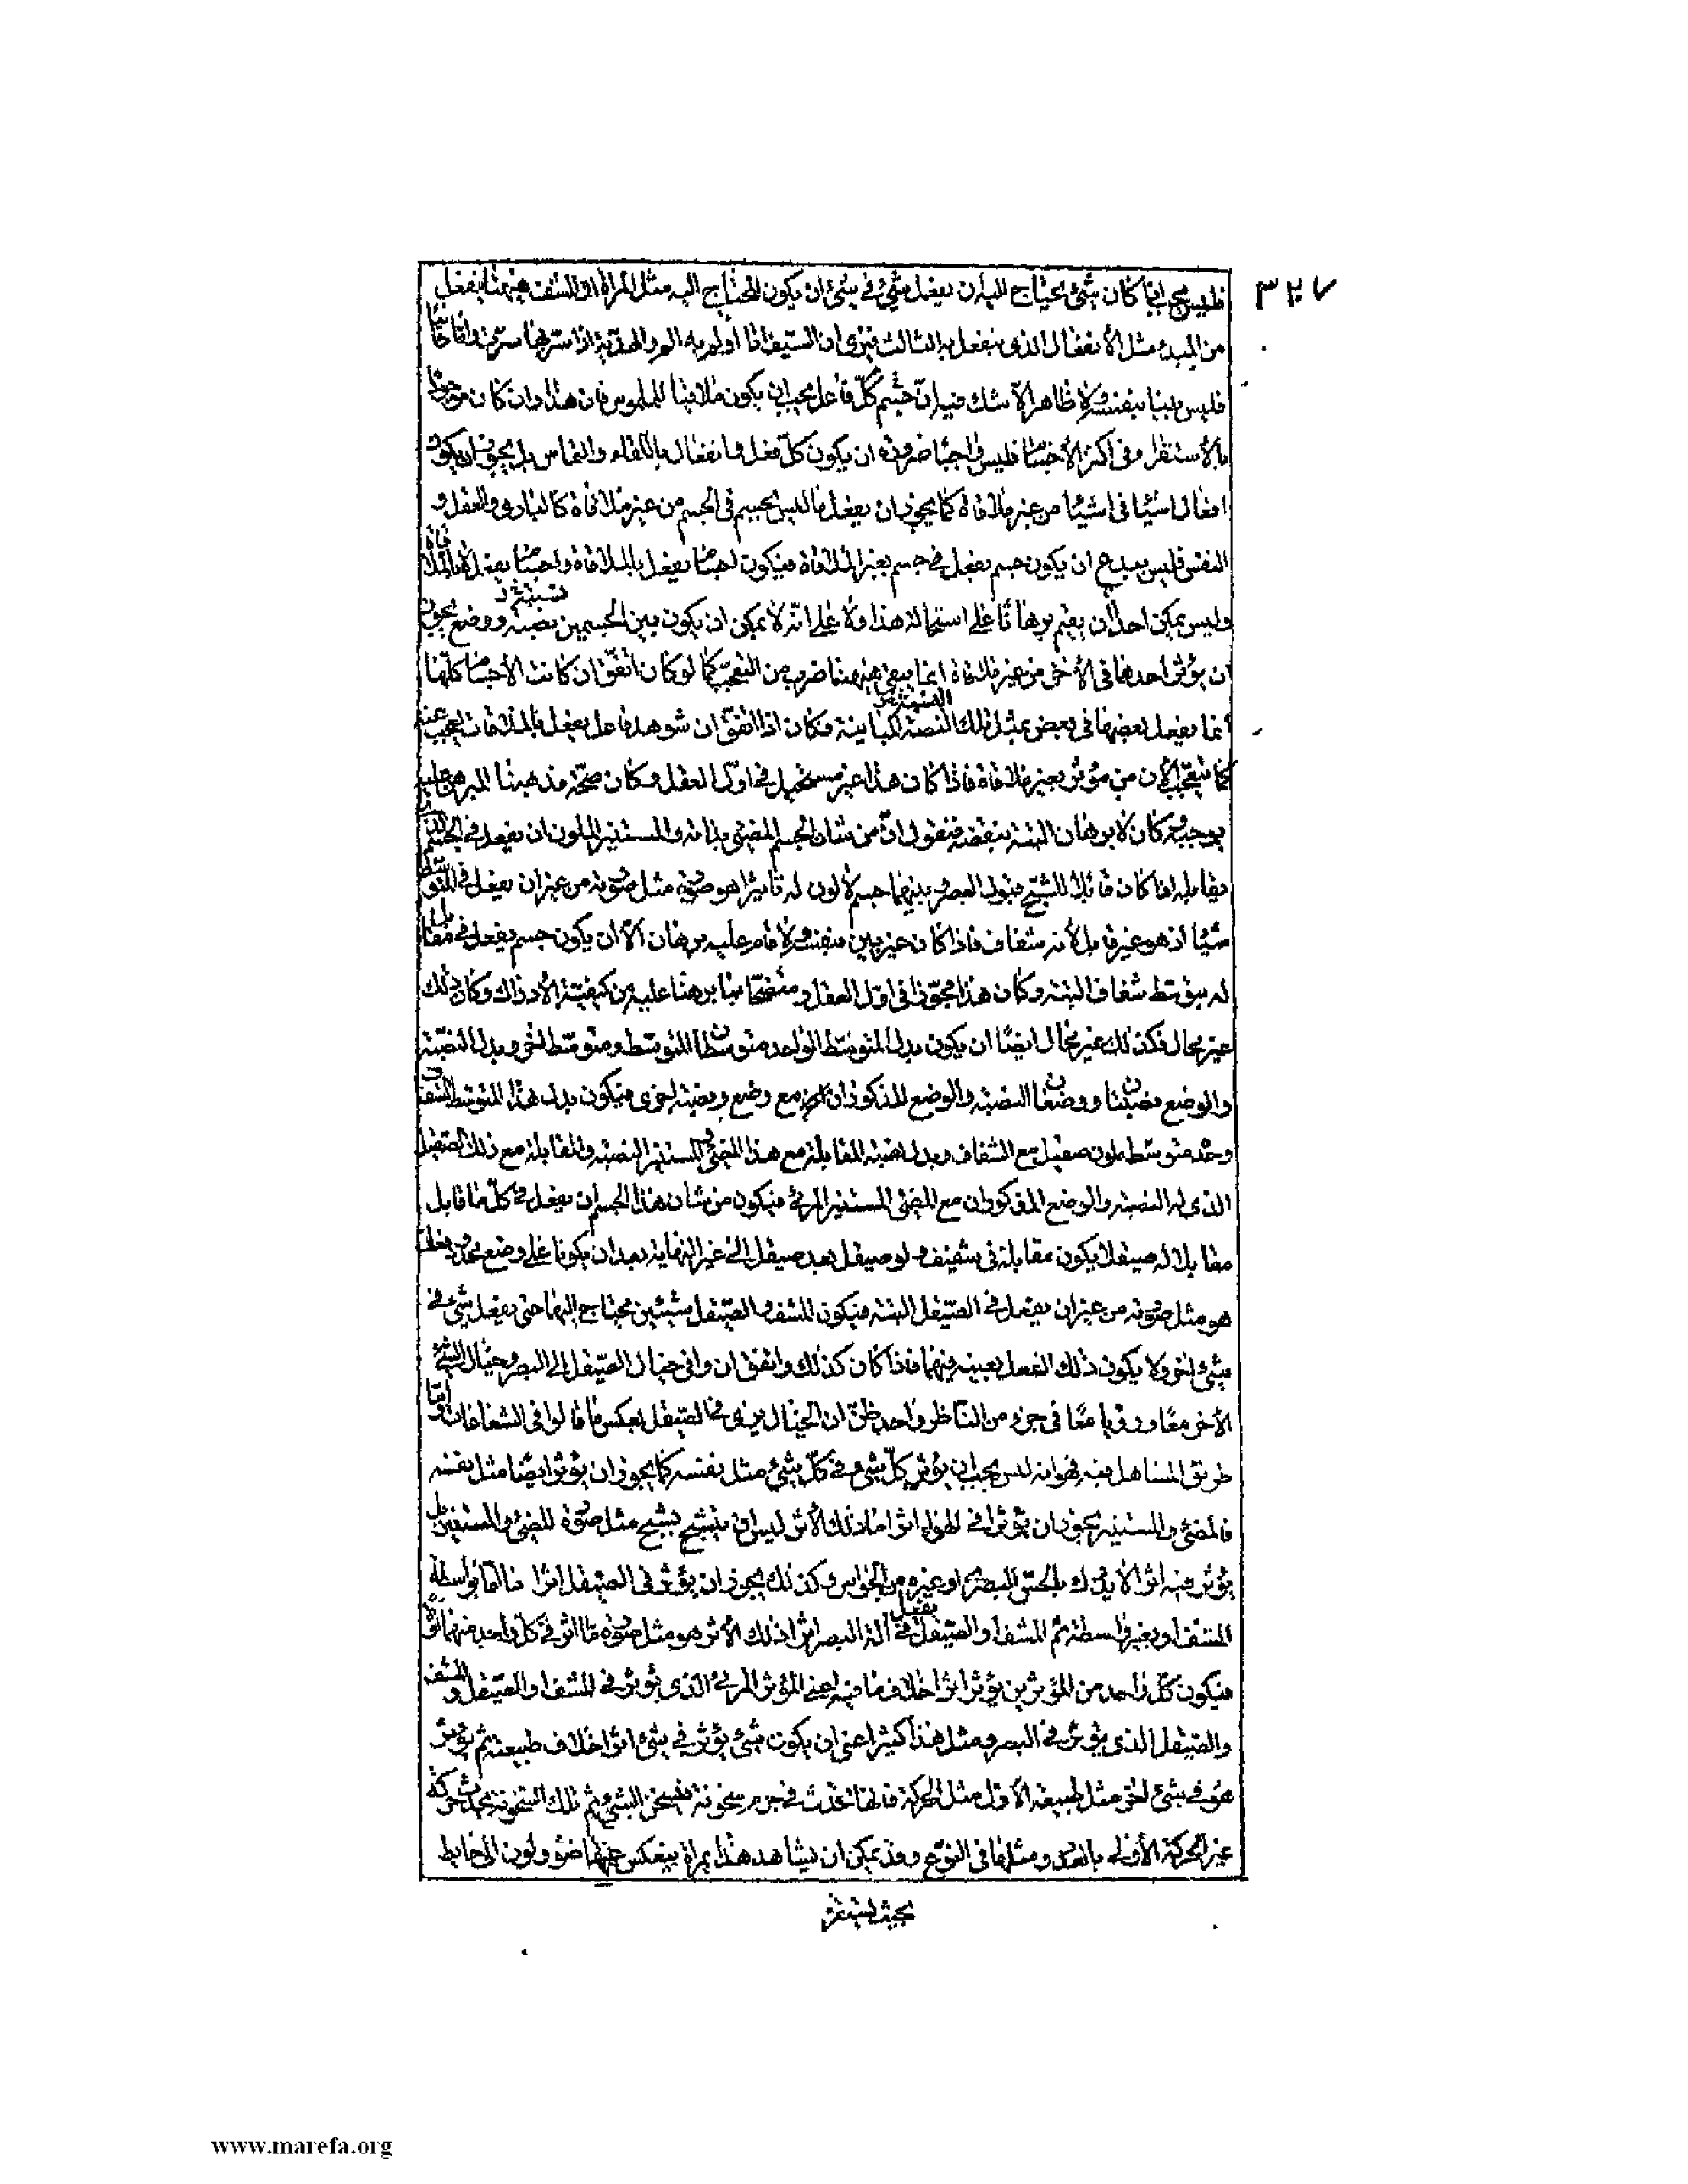 ٣٢٧
فليس يجب اذا كان شئ يحتاج اليه ان يفعل شئ في شئ ان يكون المحتاج اليه مثل المرآة او المشف ههنا ينفعل
من المبدء مثل الانفعال الذى ينفعل به الثالث فنرى ان السيف اذا اولم به الم والهدية اذا سر بها سرت واما
فليس بينا بنفسه ولا ظاهرا لا شك فيه ان كل جسم فاعل يجب ان يكون ملاقيا للملموس فان هذا وان كان موجودا
بالاستقراء فى اكثر الاجسام فليس واجبا ضرورة ان يكون كل فعل وانفعال باللقاء والتماس بل يجوز ان يكون
افعال اشياء فى اشياء من غير ملاقاة كما يجوز ان يفعل ما ليس بجسم فى الجسم من غير ملاقاة كالبارى والعقل و
النفس فليس ببدع ان يكون جسم يفعل فى جسم بغير الملاقاة فيكون اجسام يفعل بالملاقاة واجسام يفعل لا بالملاقاة
وليس يمكن احدا ان يقيم برهانا على استحالة هذا ولا على انه لا يمكن ان يكون بين الجسمين نصبة ووضع يجوز
ان يؤثر احدهما فى الآخر من غير ملاقاة انما يبقى ههنا ضرب من التعجب كما لو كان اتفق ان كانت الاجسام كلها
انما يفعل بعضها فى بعض بمثل تلك النصبة المباينة فكان اذا اتفق ان شوهد فاعل يفعل بالملاقات تعجب عنه
كما تتعجب الآن من مؤثر بغير ملاقاة فاذا كان هذا غير مستحيل فى اول العقل وكان صحة مذهبنا المبرهن عليه
يوجبه وكان لا برهان البتة ينقضه فنقول ان من شان الجسم المضئ بذاته والمستنير الملون ان يفعل فى الجسم الذى
يقابله اذا كان قابلا للشبح قبول البصر وبينهما جسم لا لون له تاثيرا هو صورة مثل صورته من غير ان يفعل فى المتوسط
شيئا اذ هو غير قابل لانه شفاف فاذا كان غير بين بنفسه ولا قام عليه برهان الا ان يكون جسم يفعل فى مقابل
له بتوسط شفاف البتة وكان هذا مجوزا فى اول العقل ومتضحا بما برهنا عليه من كيفية الادراك وكان ذلك
غير محال فكذلك غير محال ايضا ان يكون بدل المتوسط الواحد متوسطان المتوسط ومتوسط اخر وبدل النصبة
والوضع نصبتان ووضعان النصبة والوضع المذكوران مع وضع ونصبة اخرى فيكون بدل هذا المتوسط الشفاف
وحده متوسط ملون صقيل مع الشفاف وبدل نصبة المقابلة مع هذا المضئ المستنير النصبة والمقابلة مع ذلك الصقيل
الذى له النصبة والوضع المذكوران مع المضئ المستنير المرئ فيكون من شان هذا الجسم ان يفعل فى كل ما قابل
مقابلا له صقيلا يكون مقابلة فى شفيف ولو صقيل بعد صقيل الى غير النهاية بعد ان يكونا على وضع محدود فعلا
هو مثل صورته من غير ان يفعل فى الصقيل البتة فيكون المشف والصقيل شيئين يحتاج اليهما حتى يفعل شئ فى
شئ اخر ولا يكون ذلك الفعل بعينه فيهما فاذا كان كذلك واتفق ان وافى خيال الصقيل الى البصر وخيال الشئ
الآخر معا ورؤيا معا فى جزء من الناظر واحد ظن ان الخيال يرى فى الصقيل بعكس ما قالوا فى الشعاعات واما
طريق المساهلة فيه فهو انه ليس يجب ان يؤثر كل شئ فى كل شئ مثل نفسه كما يجوز ان يؤثر ايضا مثل نفسه
فالمضئ والمستنير يجوز ان يؤثرا فى الهواء اثرا ما ذلك الأثر ليس ان يتشبح بشبح مثل صورة المضئ والمستنير بل
يؤثر فيه اثرا لا يدرك بالحس البصرى او غيره من الحواس وكذلك يجوز ان يؤثر فى الصقيل اثرا ما اما بواسطة
المشف او بغير واسطة ثم المشف او الصقيل يفعل فى آلة البصر اثرا ذلك الأثر هو مثل صورة ما اثر فى كل واحد منهما
فيكون كل واحد من المؤثرين يؤثر اثرا خلاف ما فيه اعنى المؤثر المرئ الذى يؤثر فى المشف او الصقيل والمشف
والصقيل الذى يؤثر فى البصر ومثل هذا كثير اعنى ان يكون شئ يؤثر فى شئ اثرا خلاف طبيعته ثم يؤثر
هو فى شئ اخر مثل طبيعة الاول مثل الحركة فانها تحدث فى جرم سخونة فتسخن الشئ ثم تلك السخونة تحدث حركة
غير الحركة الأولى بالعدد ومثلها فى النوع وقد يمكن ان يشاهد هذا بمرآة ينعكس عنها ضوء ولون الى حايط
بحيث يستقر
www.marefa.org